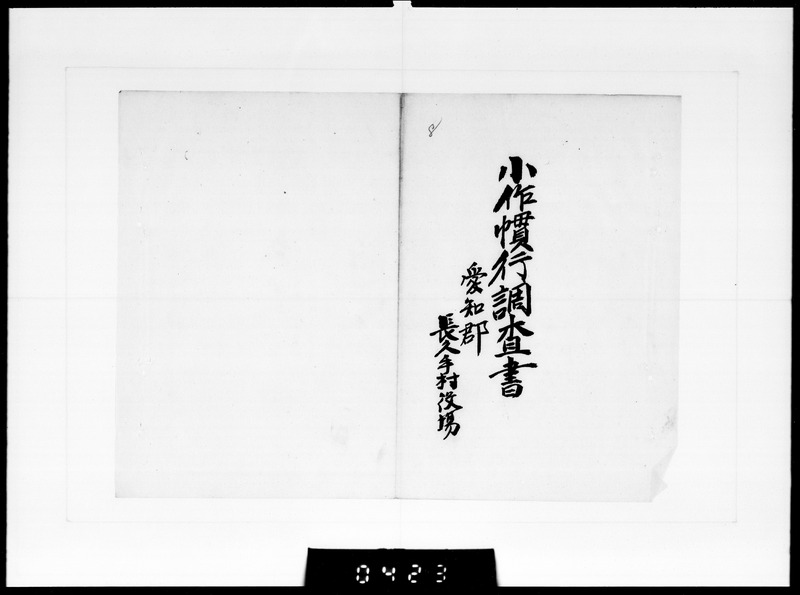 小作慣行調査書
愛知郡
長久手村役場
8
0423